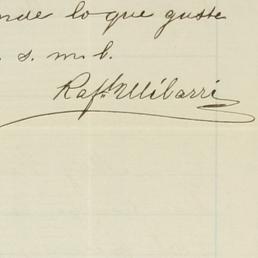 nde lo que guste
s. m. b.
Raf. Ulibarri